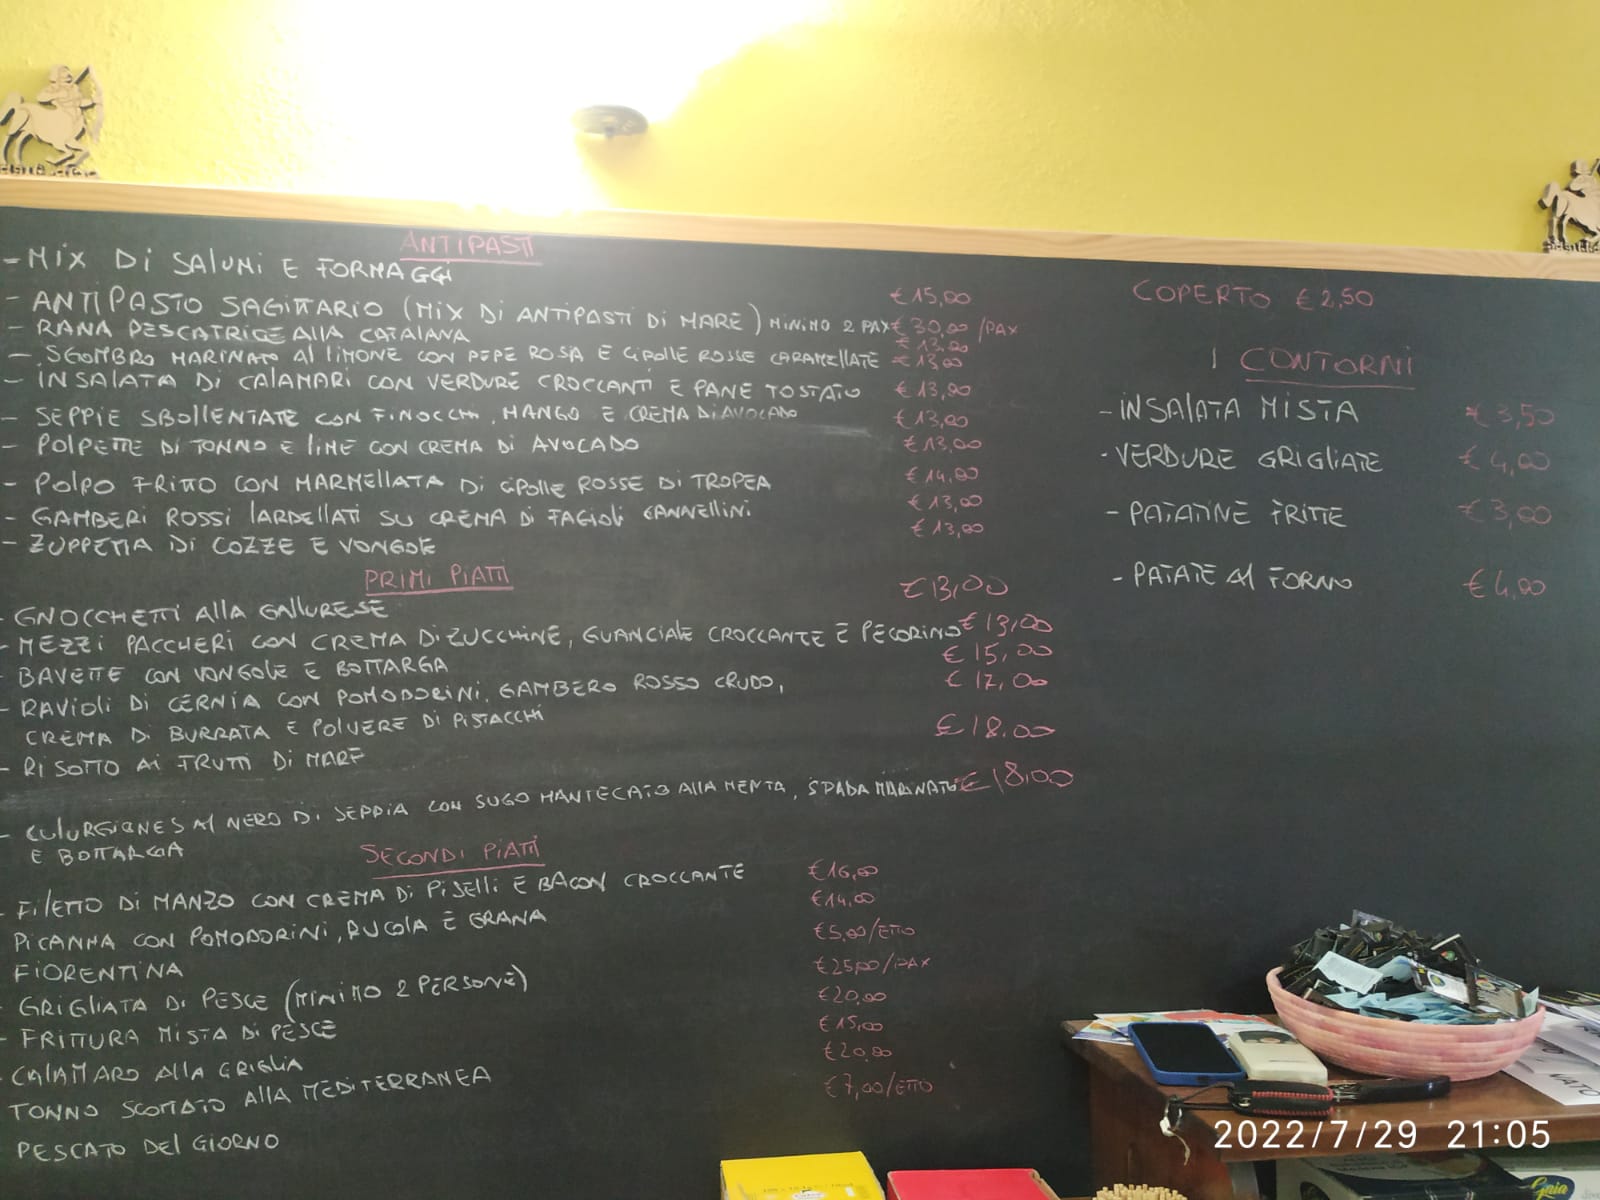 ANTIPASTI
- MIX DI SALUMI E FORMAGGI € 15,00
- ANTIPASTO SAGITTARIO (MIX DI ANTIPASTI DI MARE) MINIMO 2 PAX € 30,00 /PAX
- RANA PESCATRICE ALLA CATALANA € 13,00
- SGOMBRO MARINATO AL LIMONE CON PEPE ROSA E CIPOLLE ROSSE CARAMELLATE € 13,00
- INSALATA DI CALAMARI CON VERDURE CROCCANTI E PANE TOSTATO € 13,00
- SEPPIE SBOLLENTATE CON FINOCCHI, MANGO E CREMA DI AVOCADO € 13,00
- POLPETTE DI TONNO E LIME CON CREMA DI AVOCADO € 13,00
- POLPO FRITTO CON MARMELLATA DI CIPOLLE ROSSE DI TROPEA € 14,00
- GAMBERI ROSSI LARDELLATI SU CREMA DI FAGIOLI CANNELLINI € 13,00
- ZUPPETTA DI COZZE E VONGOLE € 13,00
PRIMI PIATTI
- GNOCCHETTI ALLA GALLURESE € 13,00
- MEZZI PACCHERI CON CREMA DI ZUCCHINE, GUANCIALE CROCCANTE E PECORINO € 13,00
- BAVETTE CON VONGOLE E BOTTARGA € 15,00
- RAVIOLI DI CERNIA CON POMODORINI, GAMBERO ROSSO CRUDO, € 17,00
CREMA DI BURRATA E POLVERE DI PISTACCHI
- RISOTTO AI FRUTTI DI MARE € 18.00
- CULURGIONES AL NERO DI SEPPIA CON SUGO MANTECATO ALLA MENTA, SPADA MARINATO € 18,00
E BOTTARGA
SECONDI PIATTI
- FILETTO DI MANZO CON CREMA DI PISELLI E BACON CROCCANTE € 16,00
PICANHA CON POMODORINI, RUCOLA E GRANA € 14,00
FIORENTINA € 5,00/ETTO
- GRIGLIATA DI PESCE (MINIMO 2 PERSONE) € 25,00/PAX
- FRITTURA MISTA DI PESCE € 20,00
- CALAMARO ALLA GRIGLIA € 15,00
TONNO SCOTTATO ALLA MEDITERRANEA € 20,00
PESCATO DEL GIORNO € 7,00/ETTO
COPERTO € 2,50
I CONTORNI
- INSALATA MISTA € 3,50
- VERDURE GRIGLIATE € 4,00
- PATATINE FRITTE € 3,00
- PATATE AL FORNO € 4,00
Gaia
2022/7/29 21:05